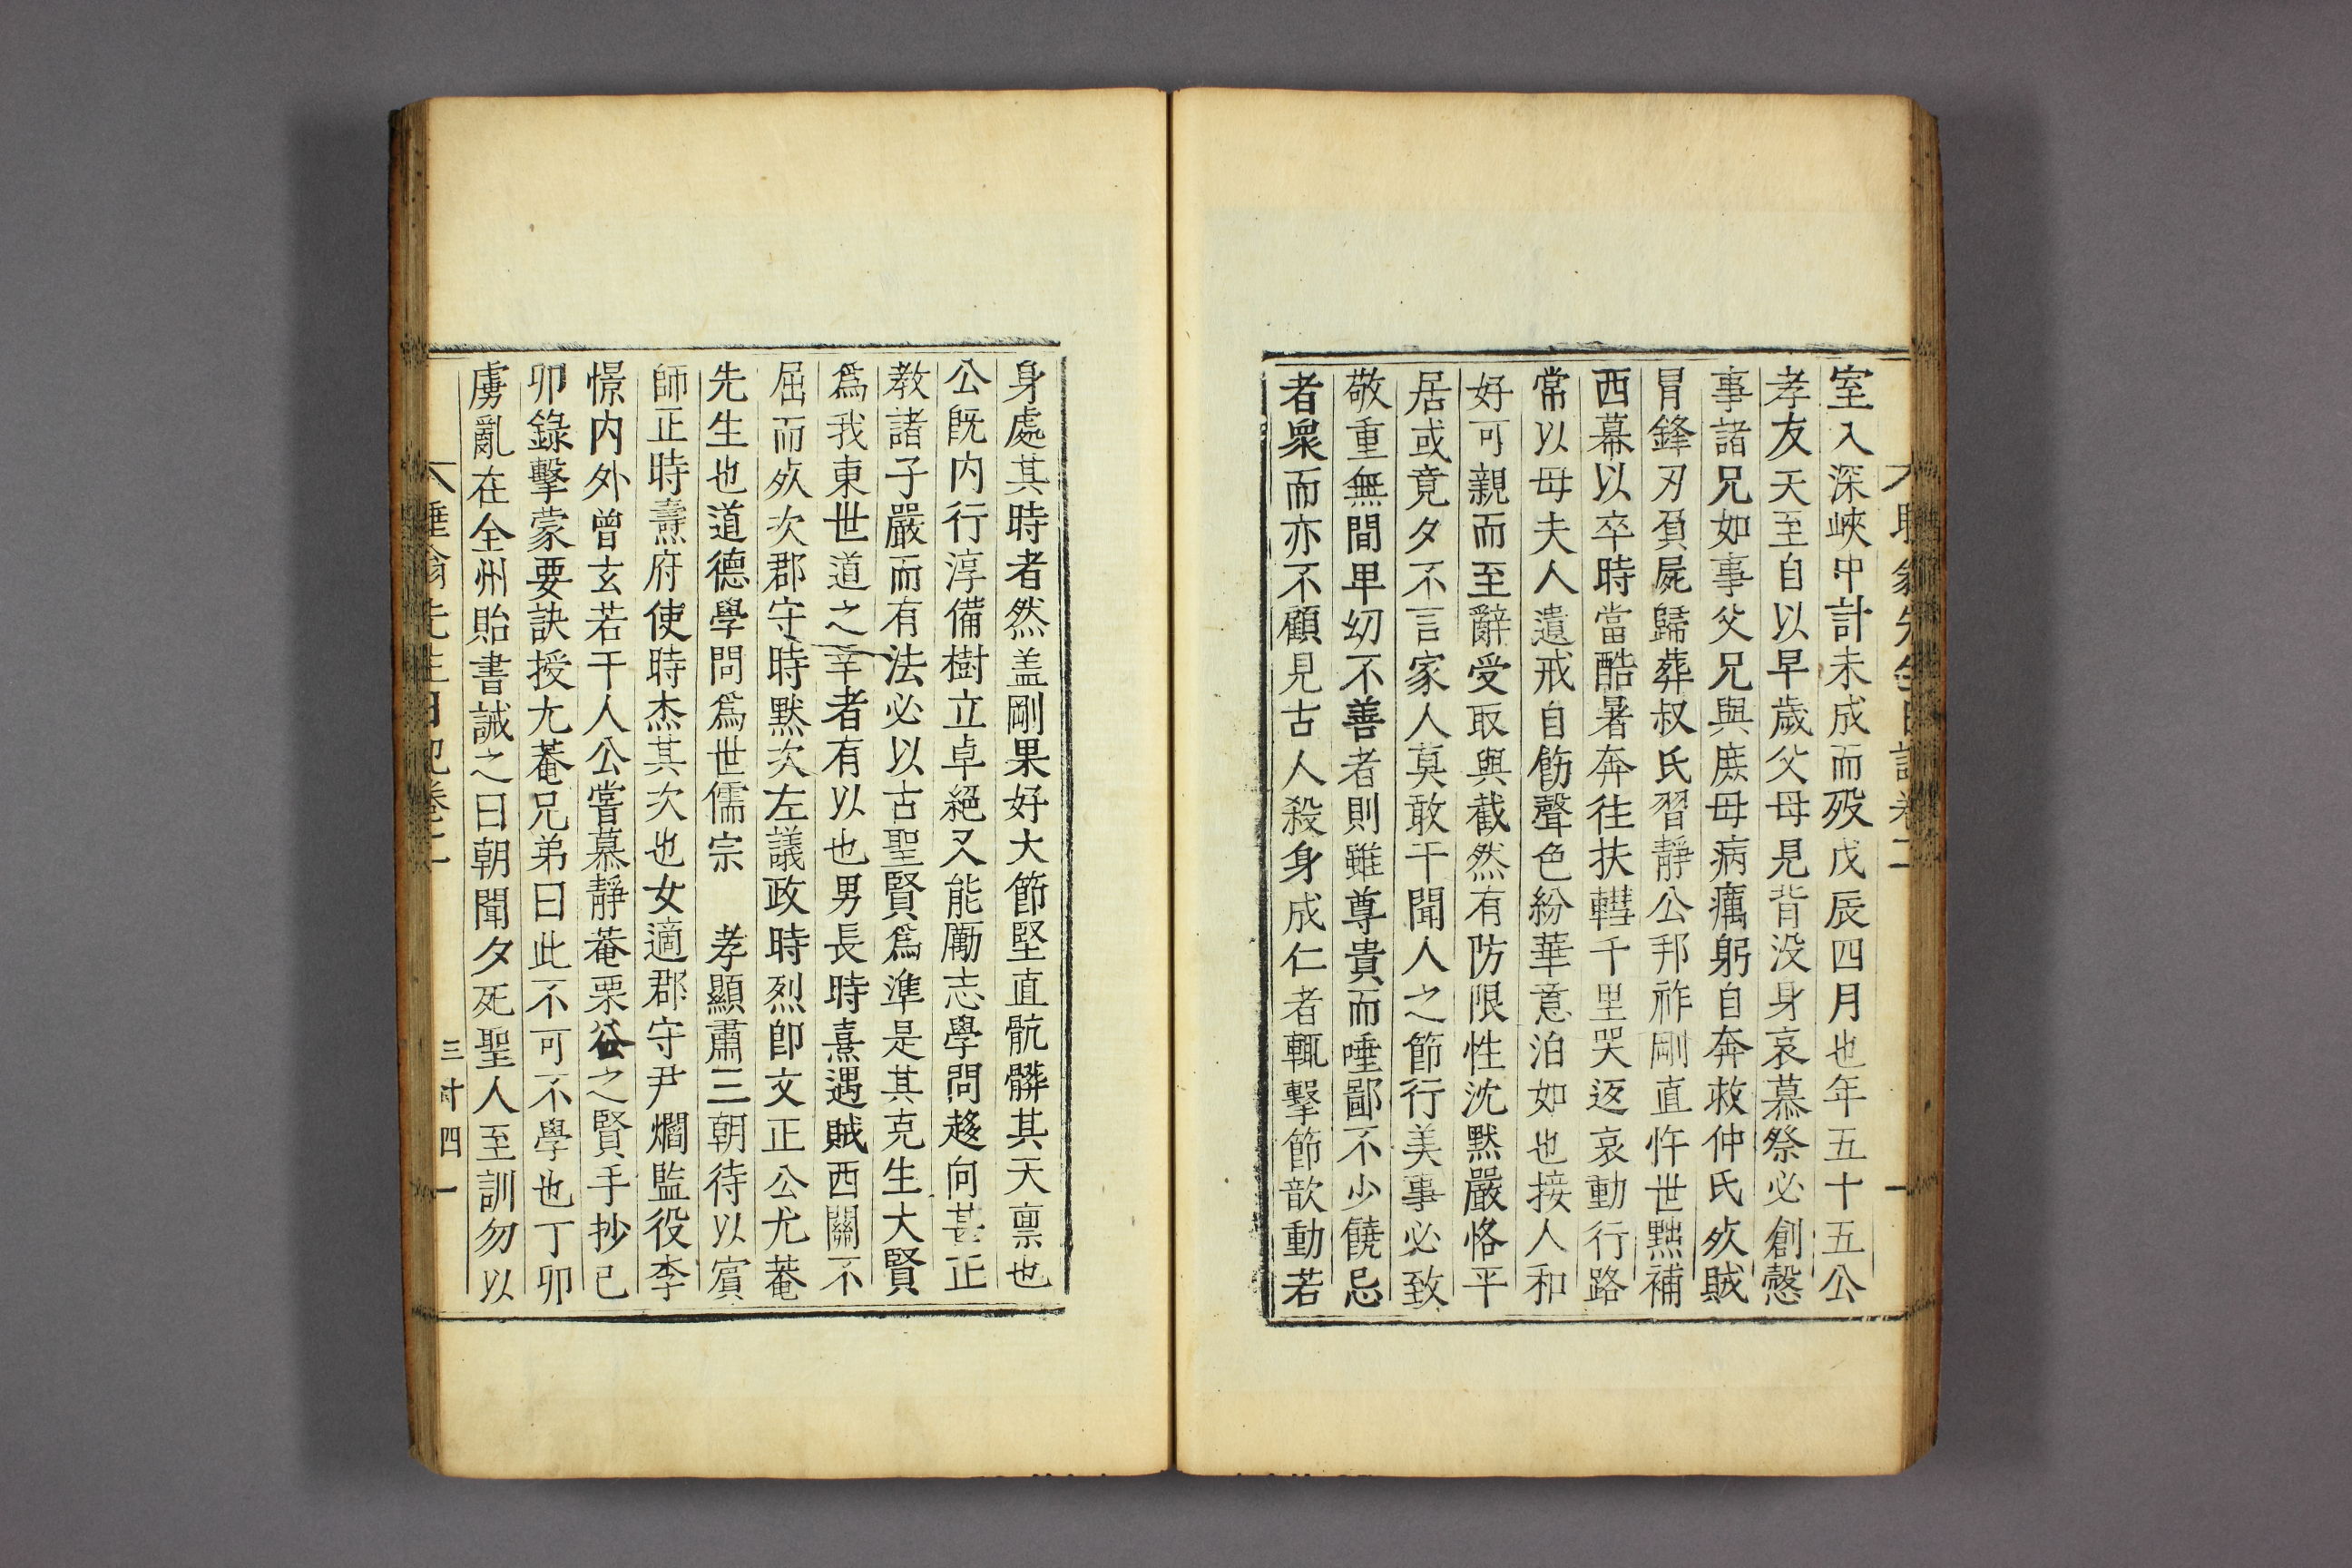 室入深峽中計未成而歿戊辰四月也年五十五公
孝友天至自以早歲父母見背沒身哀慕祭必創慤
事諸兄如事父兄與庶母病癘躬自奔救仲氏死賊
冐鋒刃負屍歸葬叔氏習靜公邦祚剛直忤世黜補
西幕以卒時當酷暑奔往扶轊千里哭返哀動行路
常以母夫人遺戒自飭聲色紛華意泊如也接人和
好可親而至辭受取與截然有防限性沈默嚴恪平
居或竟夕不言家人莫敢干聞人之節行美事必致
敬重無間卑幼不善者則雖尊貴而唾鄙不少饒忌
者衆而亦不顧見古人殺身成仁者輒擊節歆動若
身處其時者然盖剛果好大節堅直骯髒其天禀也
公既内行淳備樹立卓絕又能勵志學問趍向甚正
教諸子嚴而有法必以古聖賢爲準是其克生大賢
爲我東世道之幸者有以也男長時熹遇賊西關不
屈而死次郡守時默次左議政時烈卽文正公尤菴
先生也道德學問爲世儒宗 孝顯肅三朝待以賓
師正時燾府使時杰其次也女適郡守尹爓監役李
憬内外曾玄若干人公嘗慕靜菴栗谷之賢手抄己
卯錄擊蒙要訣授尤菴兄弟曰此不可不學也丁卯
虜亂在全州貽書誡之曰朝聞夕死聖人至訓勿以
睡翁先生日記卷二
三十四